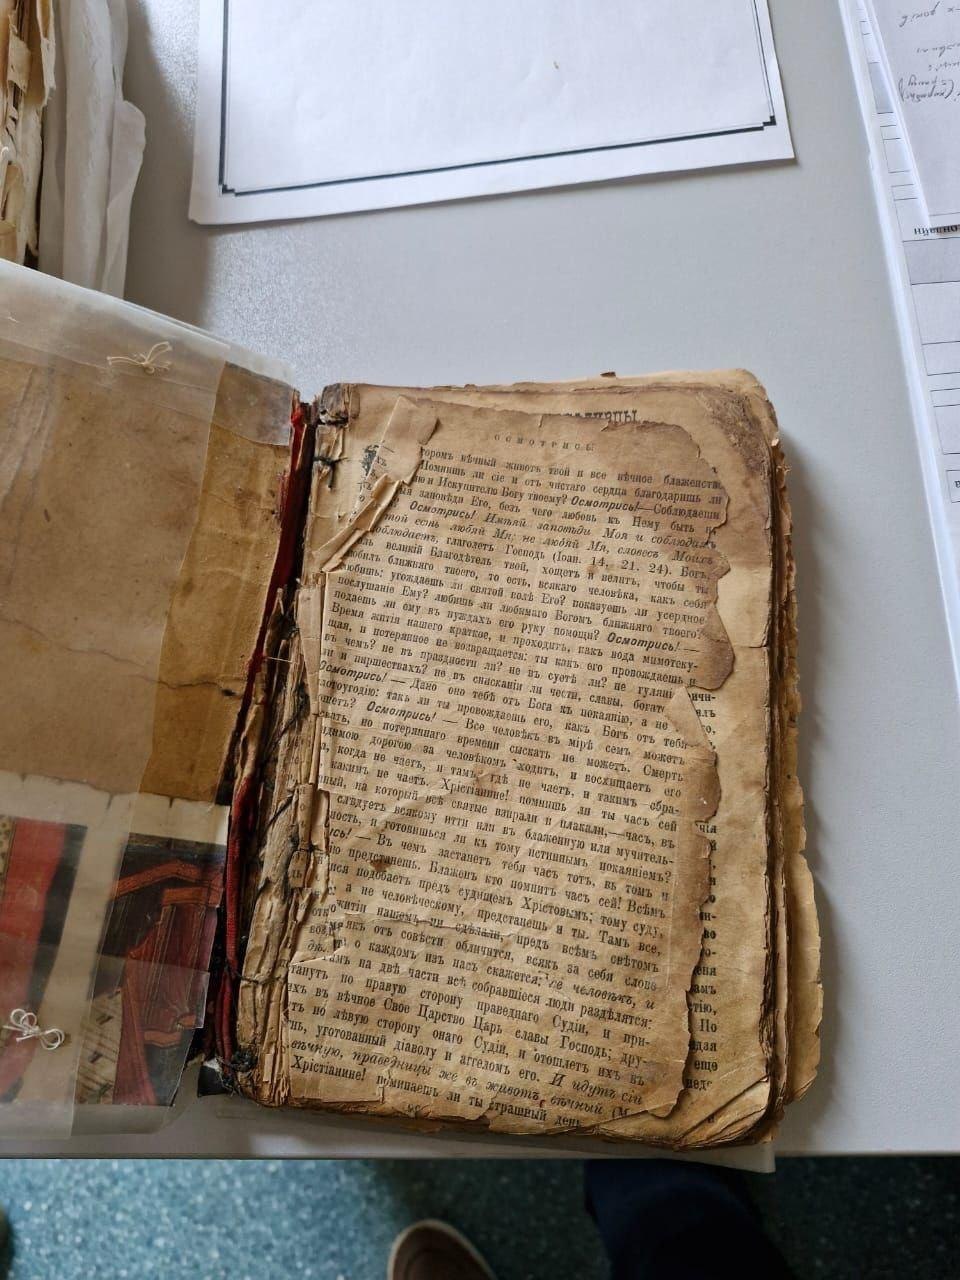 ОСМОТРИСЬ
тором вѣчный животъ твой и все вѣчное блаженство
Помнишь ли сіе и отъ чистаго сердца благодаришь ли
ю и Искупителю Богу твоему? Осмотрись!—Соблюдаеши
я заповѣди Его, безъ чего любовь къ Нему быть н
? Осмотрись! Имѣяй заповѣди Моя и соблюдаяй
той есть любяй Мя; не любяй Мя, словесъ Моихъ
облюдаетъ, глаголетъ Господь (Іоан. 14, 21. 24). Богъ,
великій Благодѣтель твой, хощетъ и велитъ, чтобы ты
юбилъ ближняго твоего, то есть, всякаго человѣка, какъ себя
любишь: угождаешь ли святой волѣ Его? показуешь ли усердное
послушаніе Ему? любишь ли любимаго Богомъ ближняго твоего?
подаешь ли ему въ нуждахъ его руку помощи? Осмотрись! —
Время житія нашего краткое, и проходитъ, какъ вода мимотеку-
щая, и потерянное не возвращается: ты какъ его провождаешь и
въ чемъ? не въ праздности ли? не въ суетѣ ли? не гуляні
ли и пиршествахъ? не въ снисканіи ли чести, славы, богат
Осмотрись! — Дано оно тебѣ отъ Бога къ покаянію, а не
лотоугодію: такъ ли ты провождаешь его, какъ Богъ отъ тебя
щетъ? Осмотрись! — Все человѣкъ въ мірѣ семъ можетъ
кать, но потеряннаго времени сыскать не можетъ. Смерть
идимою дорогою за человѣкомъ ходитъ, и восхищаетъ его
а, когда не чаетъ, и тамъ, гдѣ не чаетъ, и такимъ обра-
какимъ не чаетъ. Хрістіанине! помнишь ли ты часъ сей
ный, на который всѣ святые взирали и плакали,—часъ, въ
слѣдуетъ всякому итти или въ блаженную или мучитель-
ность, и готовишься ли къ тому истиннымъ покаяніемъ?
ись! — Въ чемъ застанетъ тебя часъ тотъ, въ томъ и
ю предстанешь. Блаженъ кто помнитъ часъ сей! Всѣмъ
ися подобаетъ предъ судищемъ Хрістовымъ; тому суду,
а не человѣческому, предстанешь и ты. Тамъ все,
житіи нашемъ ни сдѣлали, предъ всѣмъ свѣтомъ
якъ отъ совѣсти обличится, всякъ за себя слово
о каждомъ изъ насъ скажется: се человѣкъ, и
Тамъ на двѣ части всѣ собравшіеся люди раздѣлятся:
танутъ по правую сторону праведнаго Судіи, и при-
ихъ въ вѣчное Свое Царство Царь славы Господь; дру-
тъ по лѣвую сторону онаго Судіи, и отошлетъ ихъ въ
нь, уготованный діаволу и аггеломъ его. И идутъ сіи
вѣчную, праведницы же въ животъ вѣчный (М
Хрістіанине! помнишь ли ты страшный день